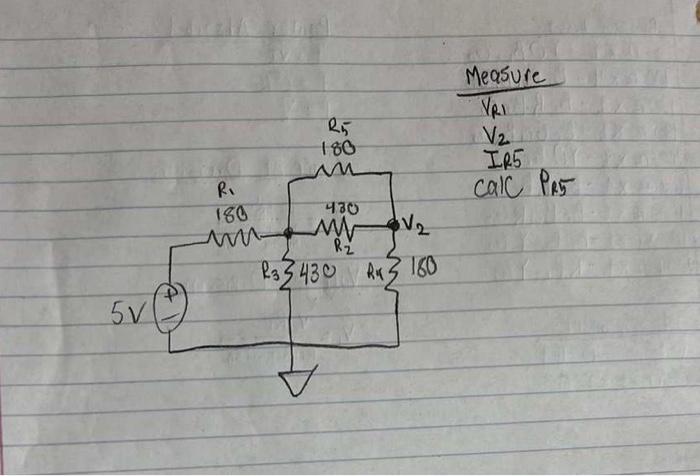 Measure
VR1
V2
IR5
calc PR5
R5
180
R1
180
430
V2
R2
R3 430
R4 180
5V
+
-